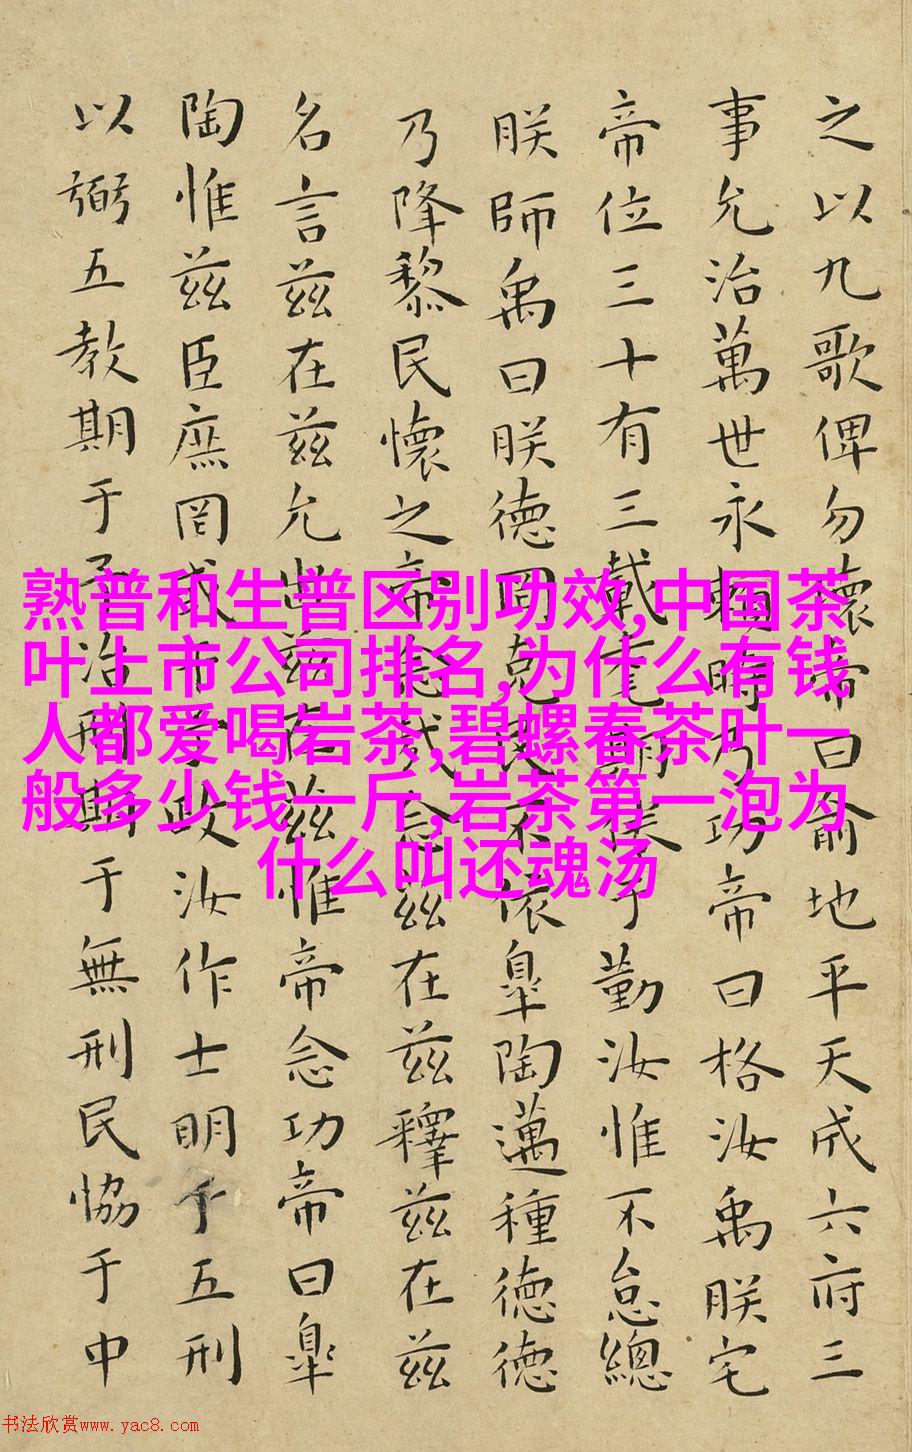 之以九歌俾勿壞帝曰俞地平天成六府三
事允治萬世永賴時乃功帝曰格汝禹朕宅
帝位三十有三載耄期倦于勤汝惟不怠總
朕師禹曰朕德罔克民不依皐陶邁種德德
乃降黎民懷之帝念哉念茲在茲釋茲在茲
名言茲在茲允出茲在茲惟帝念功帝曰皐
陶惟茲臣庶罔或干予政汝作士明于五刑
以弼五教期于予治刑期于無刑民恊于中
熟普和生普区别功效,中国茶
叶上市公司排名,为什么有钱
人都爱喝岩茶,碧螺春茶叶一
般多少钱一斤,岩茶第一泡为
什么叫还魂汤
书法欣赏www.yac8.com